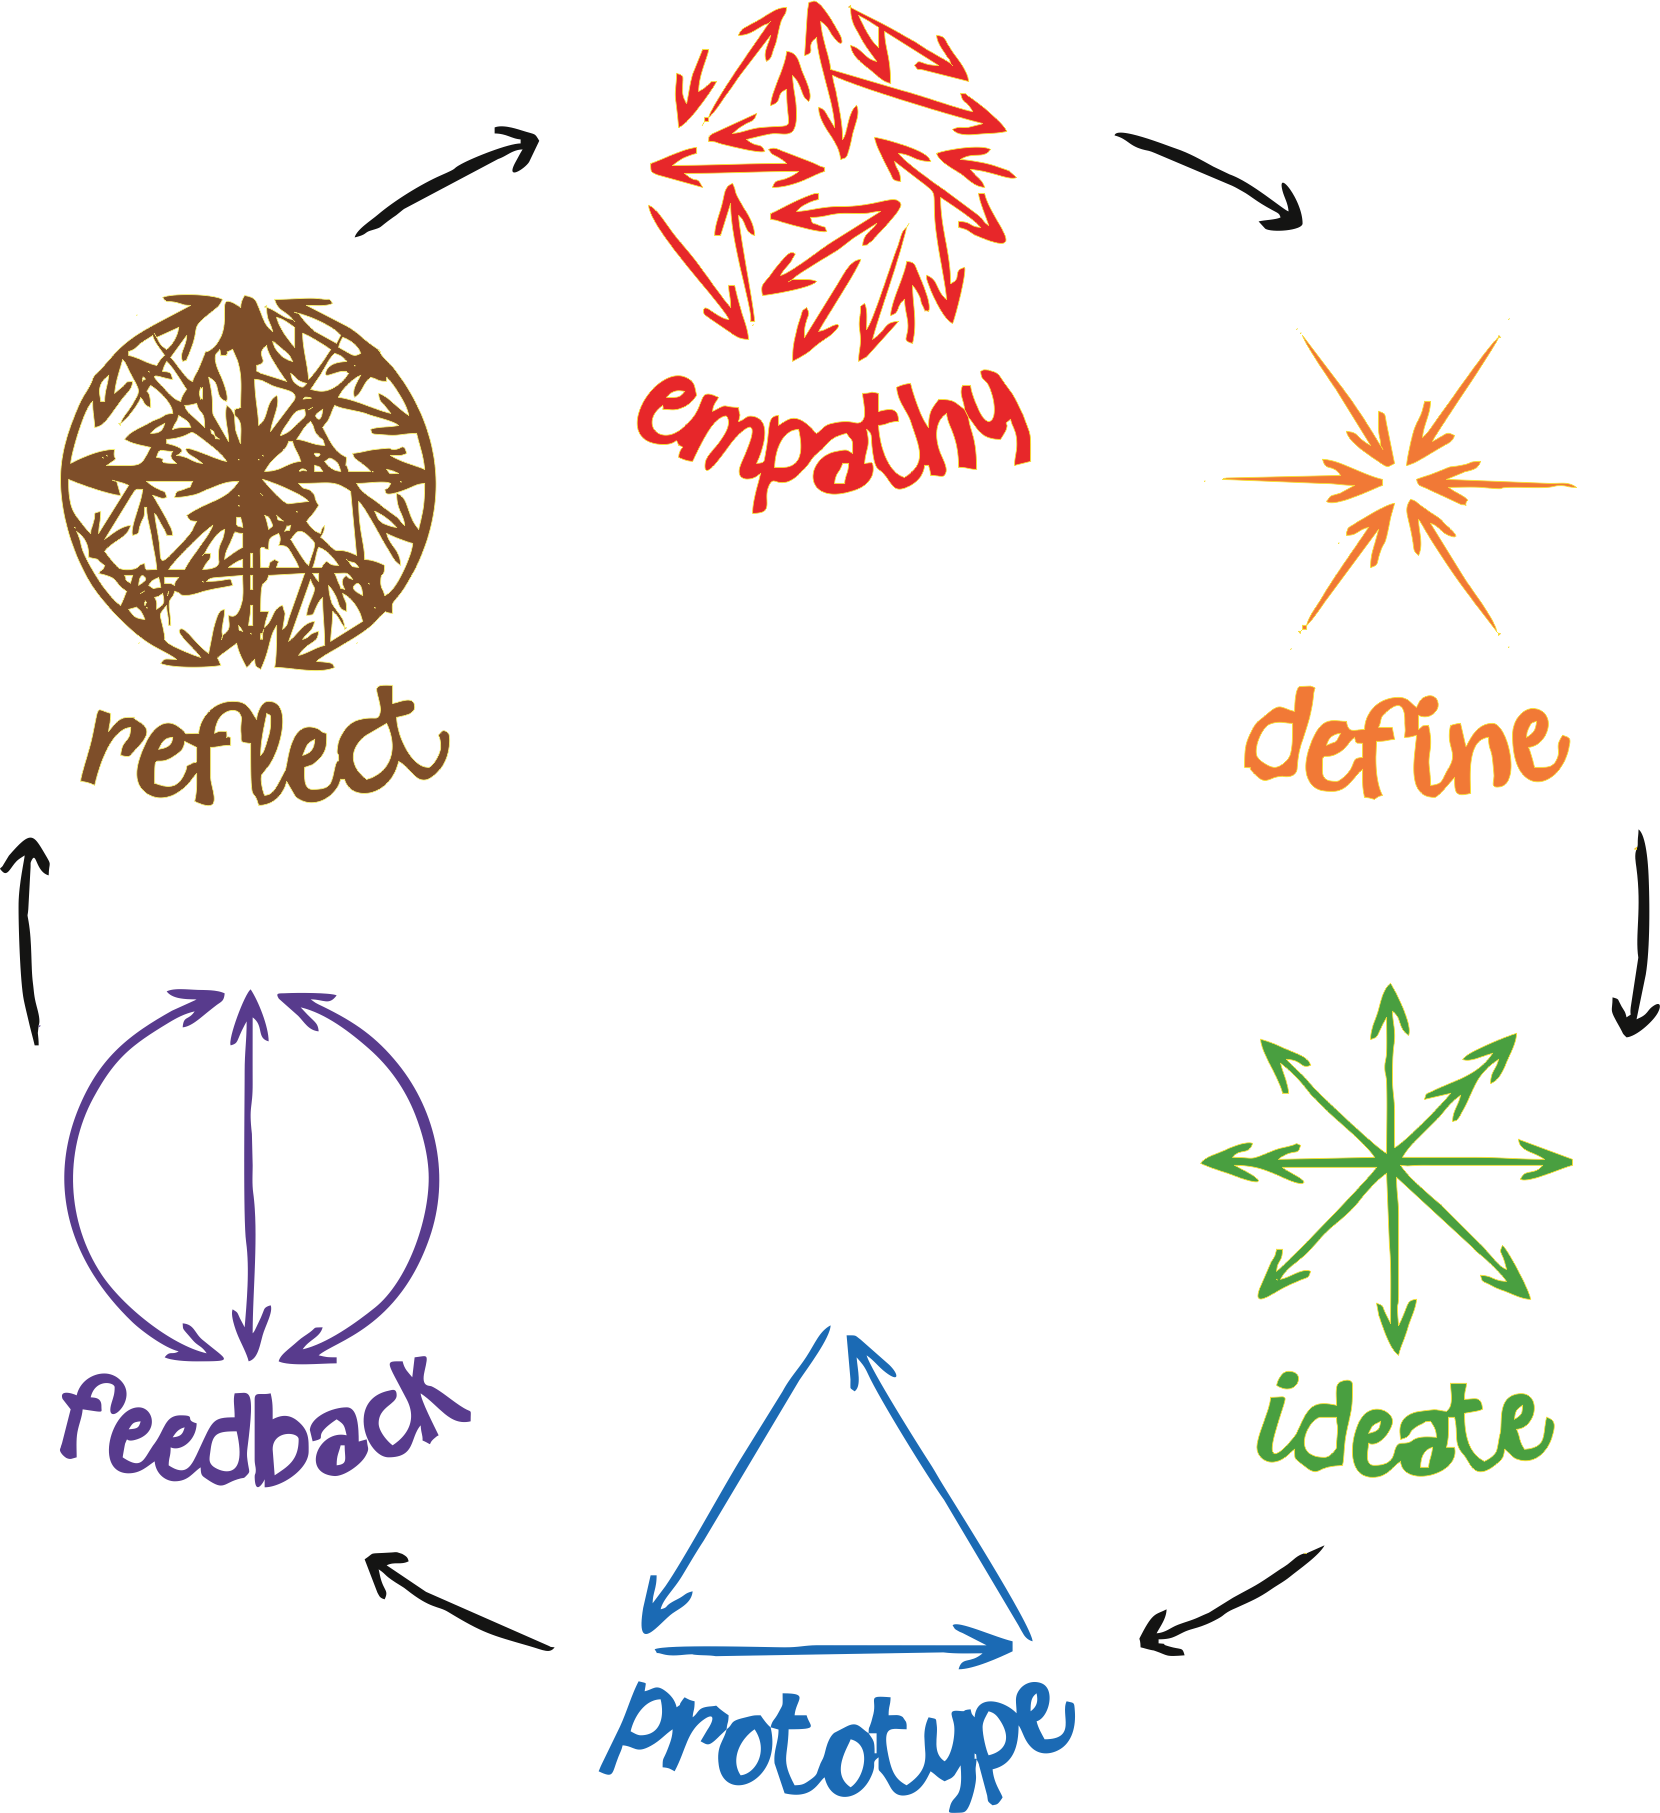 empathy
define
ideate
prototype
feedback
reflect